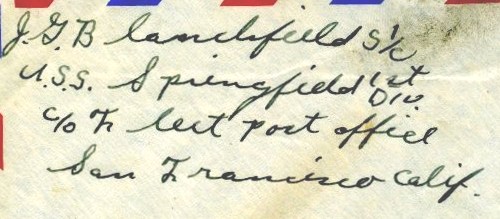 J.G. Blanchfield S 1/c
U.S.S. Springfield 1st Div.
c/o Fleet post office
San Francisco Calif.